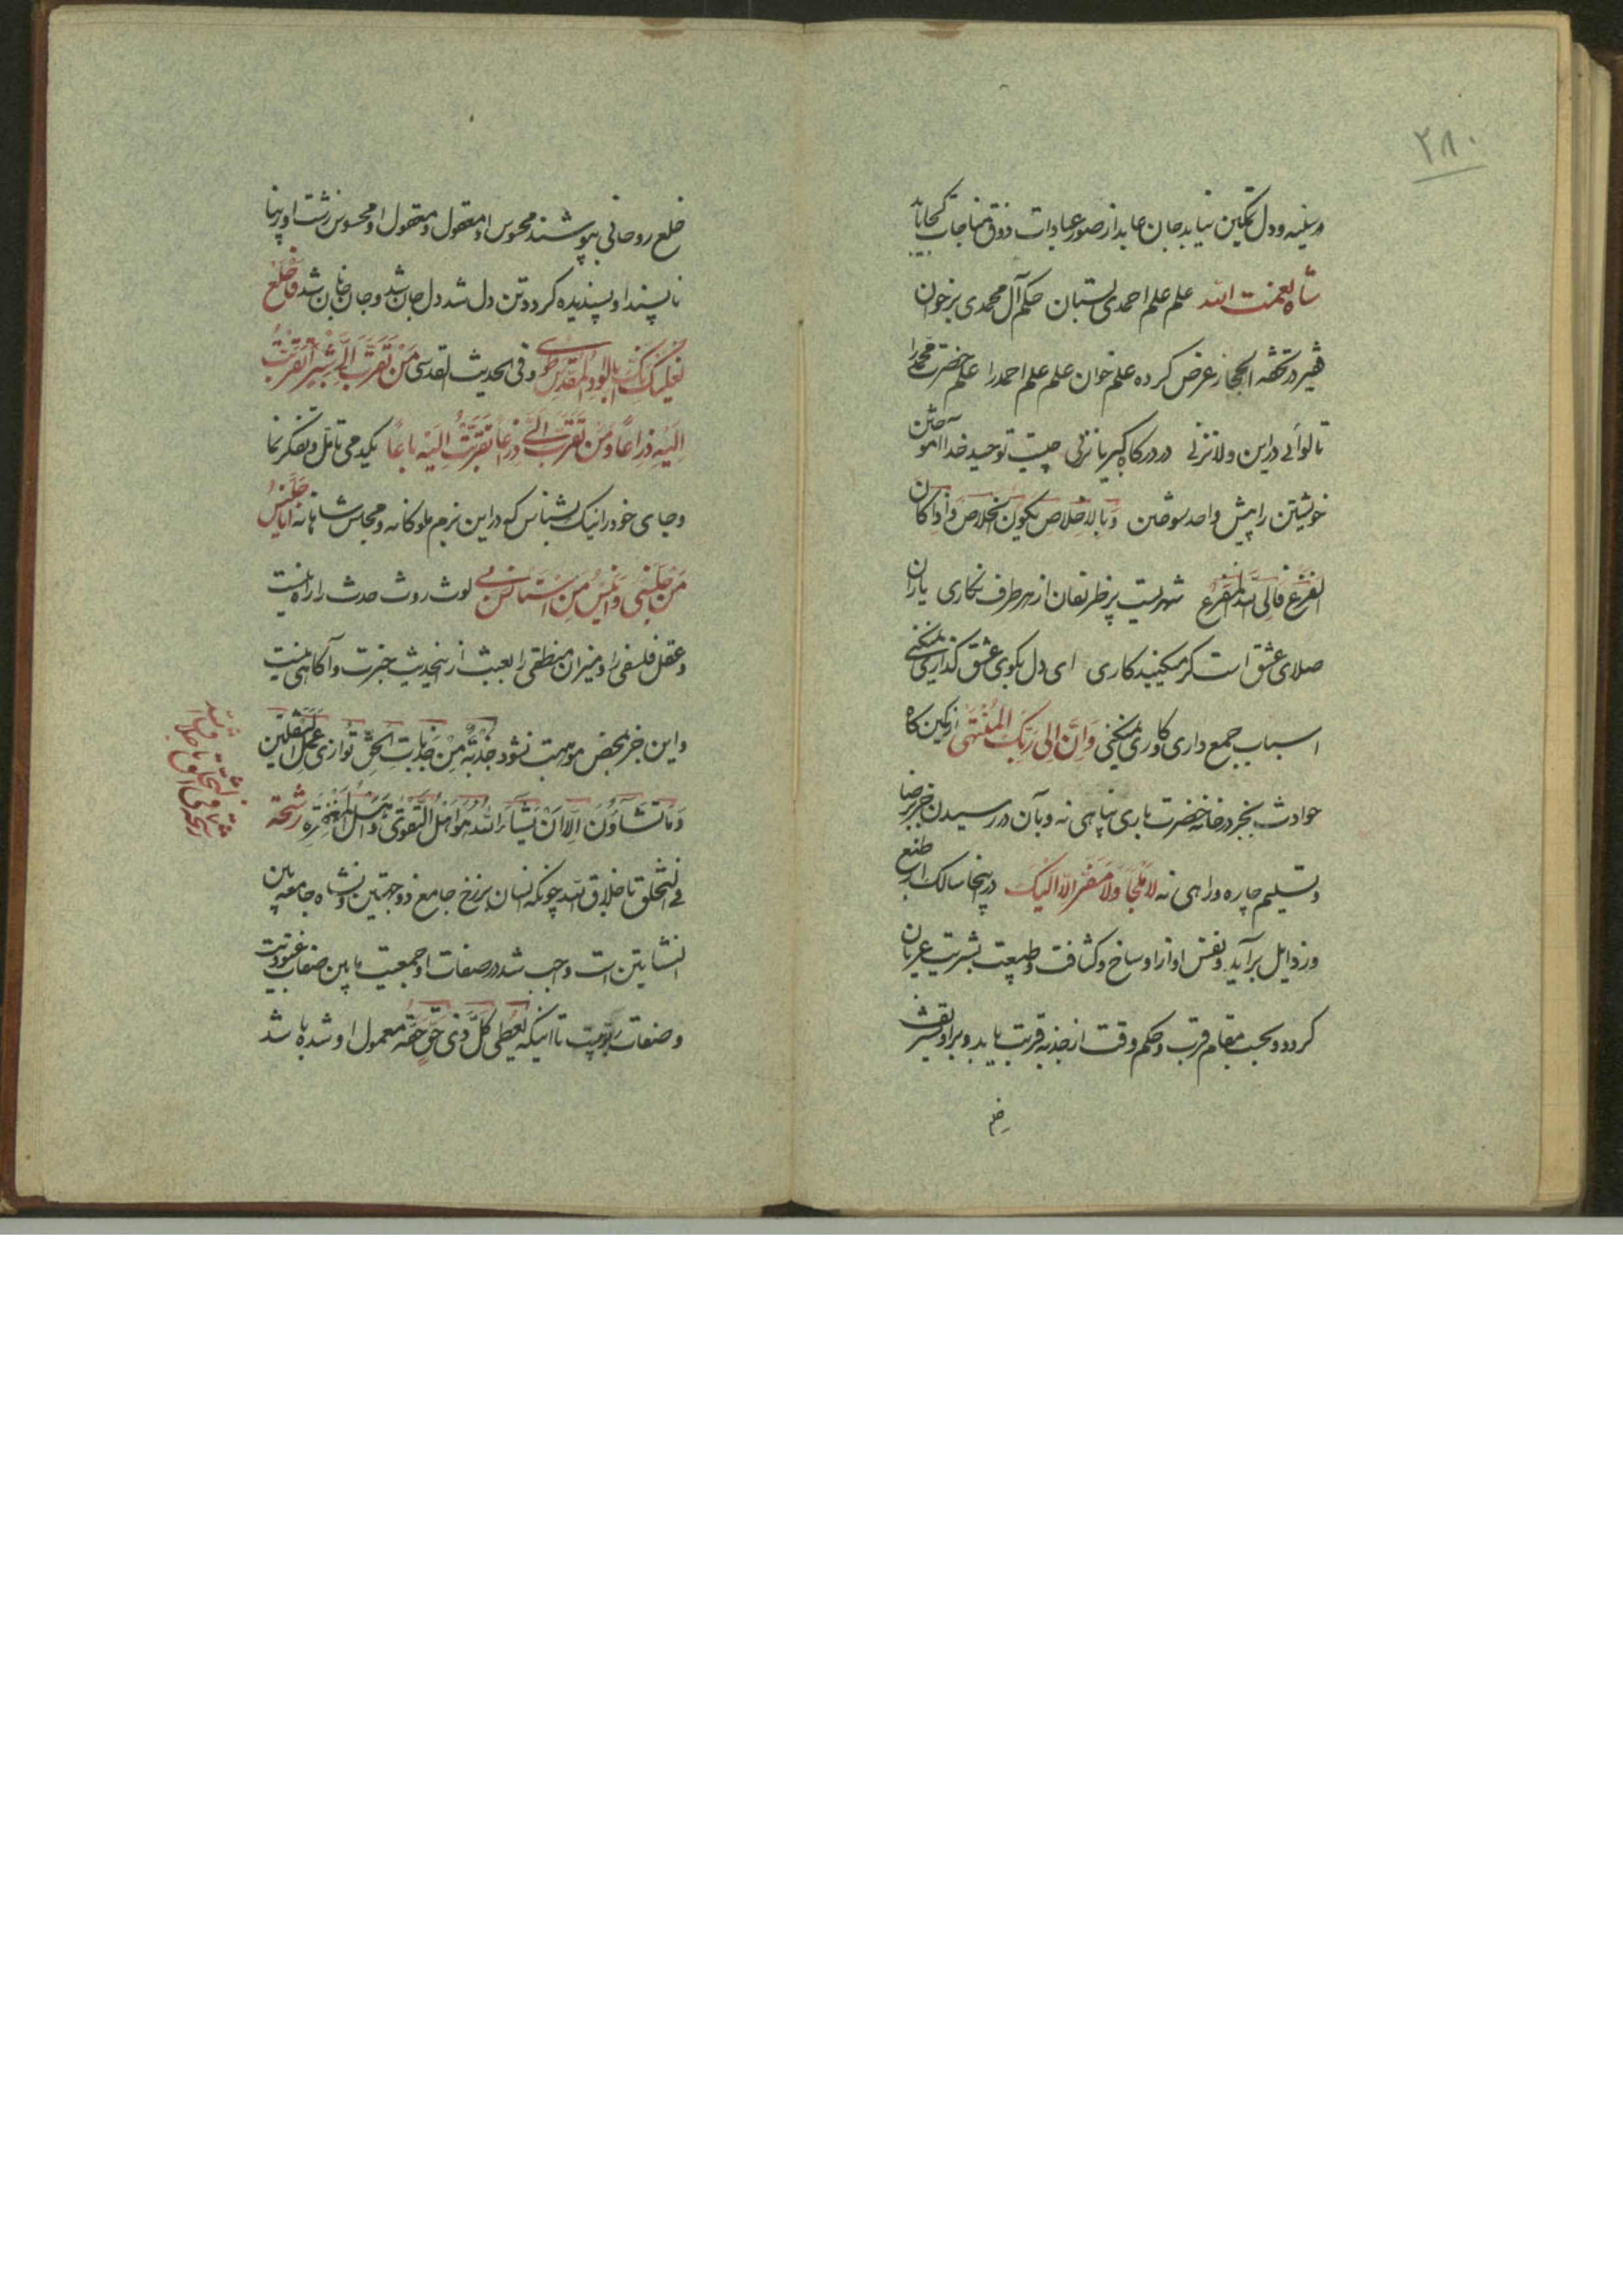 ۲۸۰
در سینه و دل تمکین نیابد جان عابد از صور عبادات ذوق مناجات کجا یابد
شاه نعمت الله علم علم احمدی بستان حکم آل محمدی برخوان
فقیر در تحفه الحجاز عرض کرده علم خوان علم علم احمد را علم حضرت محمد را
تا لوائی در این ولا نزنی در درگاه کبریا نزنی چیست توحید خدا آموختن
خویشتن را پیش واحد سوختن و بالاخلاص یکون الخلاص و اذا کان
الفزع فالی الله المفزع شهریست پر ظریفان از هر طرف نگاری یاران
صلای عشق است گر میکنید کاری ای دل بکوی عشق گذاری نمیکنی
اسباب جمع داری و کاری نمیکنی وَاَنَّ اِلی رَبِّکَ المُنْتَهی از کمین گاه
حوادث بجز در خانه حضرت باری پناهی نه و بآن در رسیدن جز رضا
و تسلیم چاره و راهی نه لا مَلْجَأَ وَلا مَفَرَّ اِلّا اِلَیْکَ در اینجا سالک را طبع
و رذایل برآید و نفس او از اوساخ و کثافت و طبیعت بشریت عریان
گردد و بحسب مقام قرب و حکم وقت از جذبه قربت یابد و بر او تشریف
خلع
خلع روحانی بپوشند محسوس او معقول و معقول او محسوس زشت او زیبا
ناپسند او پسندیده گردد تن دل شد دل جان شد و جان جانان شد فَاخْلَعْ
نَعْلَیْکَ اِنَّکَ بِالْوادِ الْمُقَدَّسِ طُوی و فی الحدیث القدسی مَنْ تَقَرَّبَ اِلَیَّ شِبْراً تَقَرَّبْتُ
اِلَیْهِ ذِراعاً وَ مَنْ تَقَرَّبَ اِلَیَّ ذِراعاً تَقَرَّبْتُ اِلَیْهِ باعاً یکدمی تأمل و تفکر نما
و جای خود را نیک بشناس که در این بزم ملوکانه و مجلس شاهانه اَنَا جَلیسُ
مَنْ جَلَسَنی وَ اَنیسُ مَنِ اسْتَأنَسَ بی لوث روث حدث را راه نیست
و عقل فلسفی را و میزان منطقی را بعبث از اینحدیث خبرت و آگاهی نیست
و این جز بمحض موهبت نشود جَذْبَةٌ مِنْ جَذَباتِ الْحَقِّ تُوازی عَمَلَ الثَّقَلَیْنِ
وَ ما تَشاؤُنَ اِلّا اَنْ یَشاءَ اللهُ هُوَ اَهْلُ التَّقْوی وَ اَهْلُ الْمَغْفِرَةِ رشحة
فی التخلق باخلاق الله چونکه انسان برزخ جامع ذو جهتین و نشاه جامعه بین
النشأتین است واجب شد در صفات او جمعیت مابین صفات عبودیت
و صفات ربوبیت تا اینکه یُعْطی کُلَّ ذی حَقٍّ حَقَّهُ معمول او شده باشد